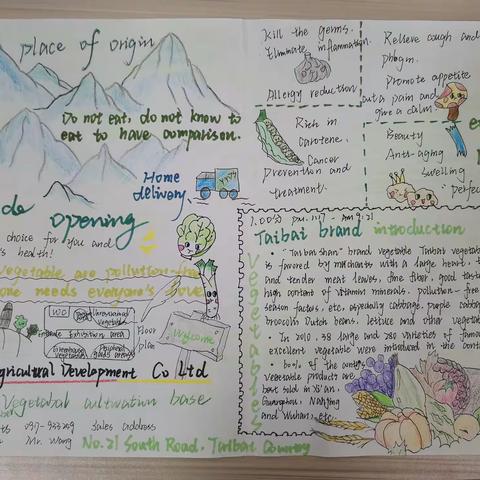 place of origin
Do not eat, do not know to
eat to have comparison.
Home
delivery
opening
choice for you and
's health!
vegetable are pollution-free
one needs everyone's love
WC
Exhibition area
Floor
plan
Welcome
Agricultural Development Co Ltd
Vegetabal cultivation base
Sales address
Mr. Wang
No.21 South Road, Taibai Country
Kill the germs.
Eliminate inflammation.
Allergy reduction
Relieve cough and
phlegm.
Promote appetite
out a pain and
give a calm
Rich in
carotene,
Cancer
Prevention and
treatment.
Beauty
Anti-aging
Swelling
perfec
Taibai brand introduction
Vegetables
• "Taibaishan" brand vegetable Taibai vegetab
is favored by merchants with a large heart, t
and tender meat leaves, fine fiber, good taste
high content of vitamin minerals, pollution-free
season factors, etc, especially cabbage, purple cabbage
broccoli Dutch beans, lettuce and other vegetab
• In 2010, 38 large and 280 varieties of famous
excellent vegetable were introduced in the cont
• 60% of the
vegetable product are
best sold in Xi'an,
Guangzhou, Nanjing
and Wuhan, etc.